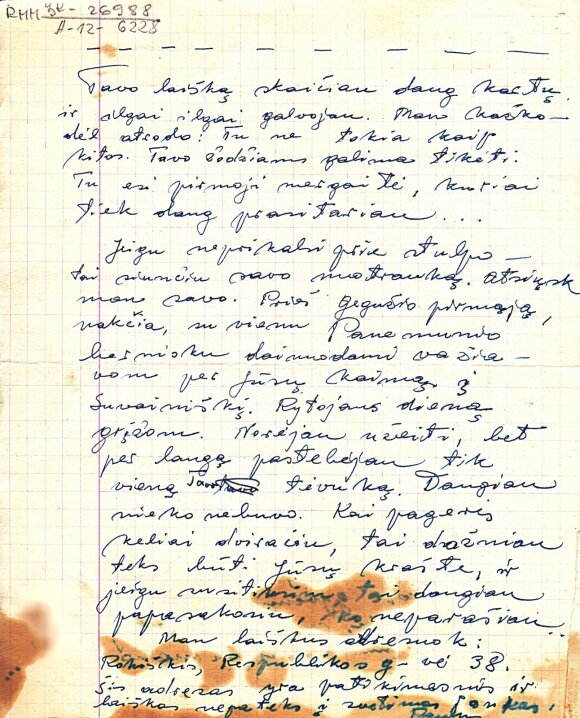 RMM JK- 26988
A-12- 6228
Tavo laišką skaičiau daug kartų
ir ilgai ilgai galvojau. Man kažko-
dėl atrodo: Tu ne tokia kaip
kitos. Tavo žodžiams galima tikėti.
Tu esi pirmoji mergaitė, kuriai
tiek daug prasitariau....
Jeigu neprikalsi prie stulpo –
tai siunčiu savo nuotrauką. Atsiųsk
man savo. Prieš gegužio pirmąją,
nakčia, su vienu Panemunio
berniuku dainuodami važia-
vom per Jūsų kaimą į
Suvainiškį. Rytojaus dieną
grįžom. Norėjau užeiti, bet
per langą pastebėjau tik
vieną Tavo tėvuką. Daugiau
nieko nebuvo. Kai pagerės
keliai dviračiu, tai dažniau
teks būti Jūsų krašte, ir
jeigu susitiksim tai daugiau
papasakosiu, ko neparašiau.
Man laiškus adresuok:
Rokiškis, Respublikos g-vė 38.
Šis adresas yra patikimesnis ir
laiškas nepateks į svetimas rankas.